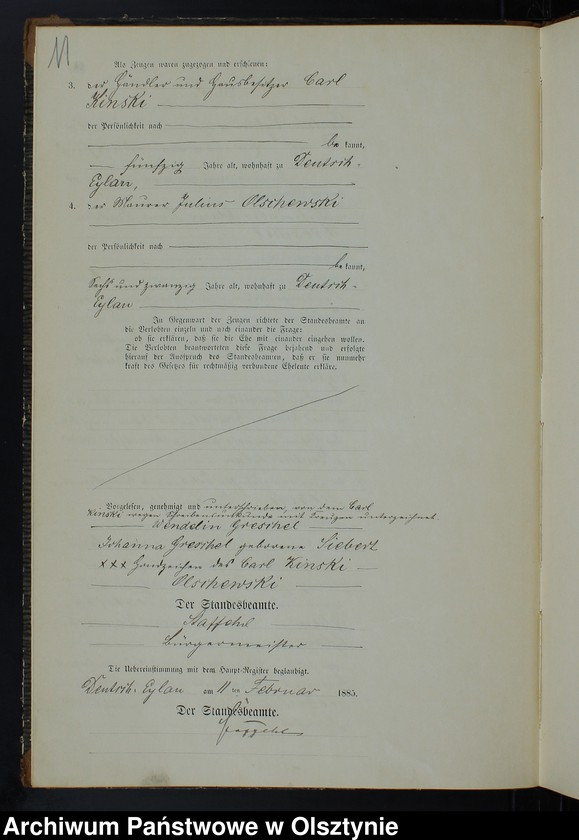 11
Als Zeugen waren zugezogen und erschienen:
3. der Händler und Hausbesitzer Carl
Kinski
der Persönlichkeit nach
be kannt,
fünfzig Jahre alt, wohnhaft zu Deutsch-
Eylau,
4. der Maurer Julius Olschewski
der Persönlichkeit nach
be kannt,
Sechs und zwanzig Jahre alt, wohnhaft zu Deutsch-
Eylau
In Gegenwart der Zeugen richtete der Standesbeamte an
die Verlobten einzeln und nach einander die Frage:
ob sie erklären, daß sie die Ehe mit einander eingehen wollen.
Die Verlobten beantworteten diese Frage bejahend und erfolgte
hierauf der Ausspruch des Standesbeamten, daß er sie nunmehr
kraft des Gesetzes für rechtmäßig verbundene Eheleute erkläre.
Vorgelesen, genehmigt und unterschrieben, von dem Carl
Kinski wegen Schreibensunkunde mit Kreuzen unterzeichnet.
Wendelin Greschel
Johanna Greschel geborene Siebert
××× Handzeichen des Carl Kinski
Olschewski
Der Standesbeamte.
Staffehl
Bürgermeister
Die Uebereinstimmung mit dem Haupt-Register beglaubigt.
Deutsch-Eylau am 11 ten Februar 1885.
Der Standesbeamte.
Staffehl
Archiwum Państwowe w Olsztynie